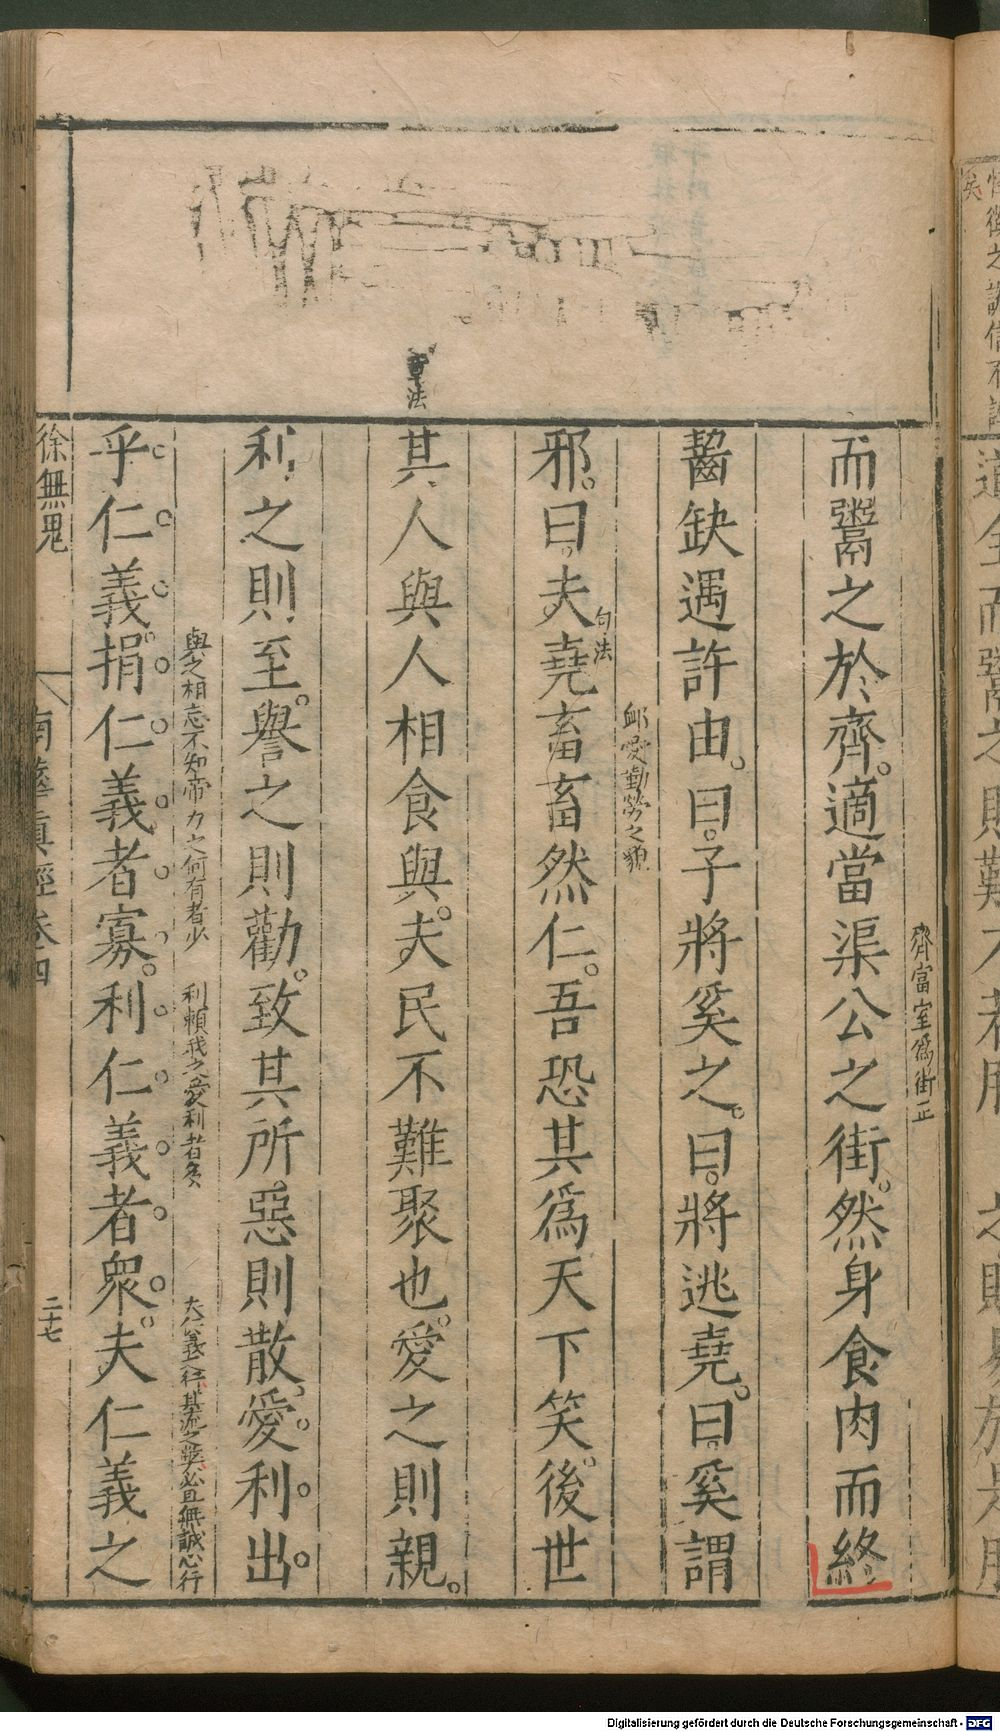 齊富室爲街正
而鬻之於齊。適當渠公之街。然身食肉而終
齧缺遇許由。曰。子將奚之。曰。將逃堯。曰。奚謂
卹愛勤勞之貌
句法
邪。曰。夫堯畜畜然仁。吾恐其爲天下笑。後世
章法
其人與人相食與。夫民不難聚也。愛之則親。
利之則至。譽之則勸。致其所惡則散。愛利出
與之相忘不知帝力之何有者少 利賴我之愛利者多 夫仁義之行其流之弊必且無誠心行
乎仁義。捐仁義者寡。利仁義者衆。夫仁義之
徐無鬼 南華眞經卷四 二十七
道 全而鬻之則難不若刖 之則易於是刖
Digitalisierung gefördert durch die Deutsche Forschungsgemeinschaft - DFG